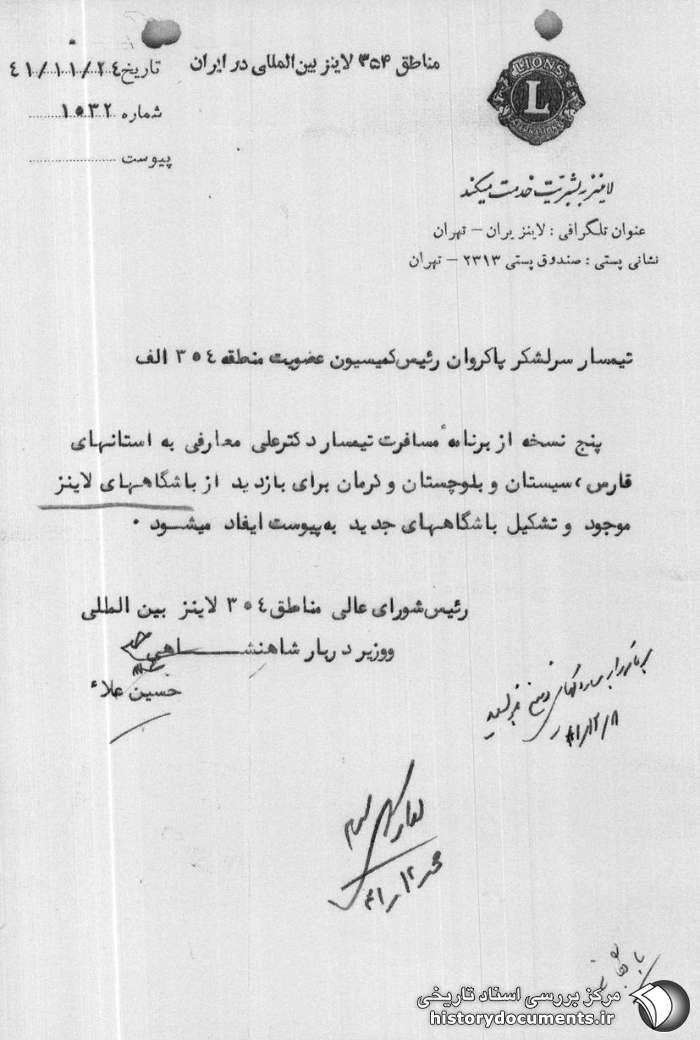 مناطق ۳۵۴ لاینز بین‌المللی در ایران
تاریخ ۴۱/۱۱/۲۴
شماره ۱۵۳۲
پیوست
LIONS
L
INTERNATIONAL
لاینز به بشریت خدمت میکند
عنوان تلگرافی : لاینز یران - تهران
نشانی پستی : صندوق پستی ۲۳۱۳ - تهران
تیمسار سرلشکر پاکروان رئیس کمیسیون عضویت منطقه ۳۵۴ الف
پنج نسخه از برنامه مسافرت تیمسار دکتر علی معارفی به استانهای
فارس، سیستان و بلوچستان و کرمان برای بازدید از باشگاههای لاینز
موجود و تشکیل باشگاههای جدید به پیوست ایفاد میشود .
رئیس شورای عالی مناطق ۳۵۴ لاینز بین المللی
ووزیر دربار شاهنشاهی
حسین علاء
۴۱/۱۲/۸
مرکز بررسی اسناد تاریخی
historydocuments.ir